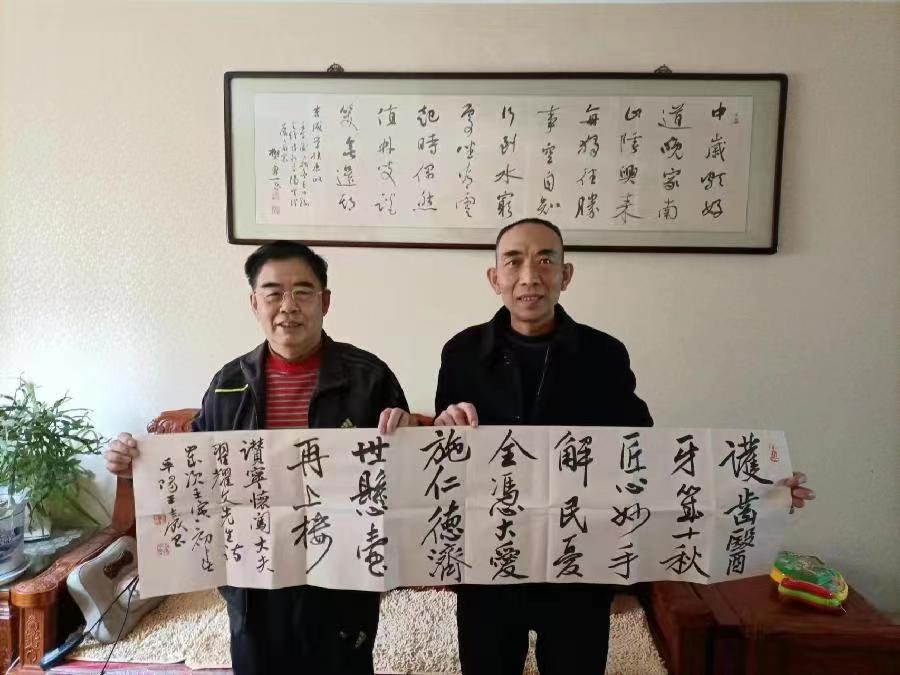 中歲頗好
道晚家南
山陲興来
每獨往勝
事空自知
行到水窮
處坐看雲
起時偶然
值林叟談
笑無還期
護齒醫
牙幾十秋
匠心妙手
解民憂
全憑大愛
施仁德濟
世懸壺
再上楼
讃寧懷闖大夫
翟耀文先生詩
歲次壬寅初春
平陽王